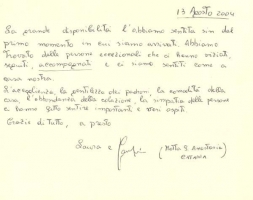 13 Agosto 2004
La grande disponibilità l'abbiamo sentita sin dal
primo momento in cui siamo arrivati. Abbiamo
trovato delle persone eccezionali che ci hanno viziati,
seguiti, accompagnati e ci siamo sentiti come a
casa nostra.
L'accoglienza, la gentilezza dei padroni, la comodità della
casa, l'abbondanza della colazione, la simpatia delle persone
ci hanno fatto sentire importanti e veri ospiti.
Grazie di tutto, a presto
Laura e
(Motta S. Anastasia
CATANIA)